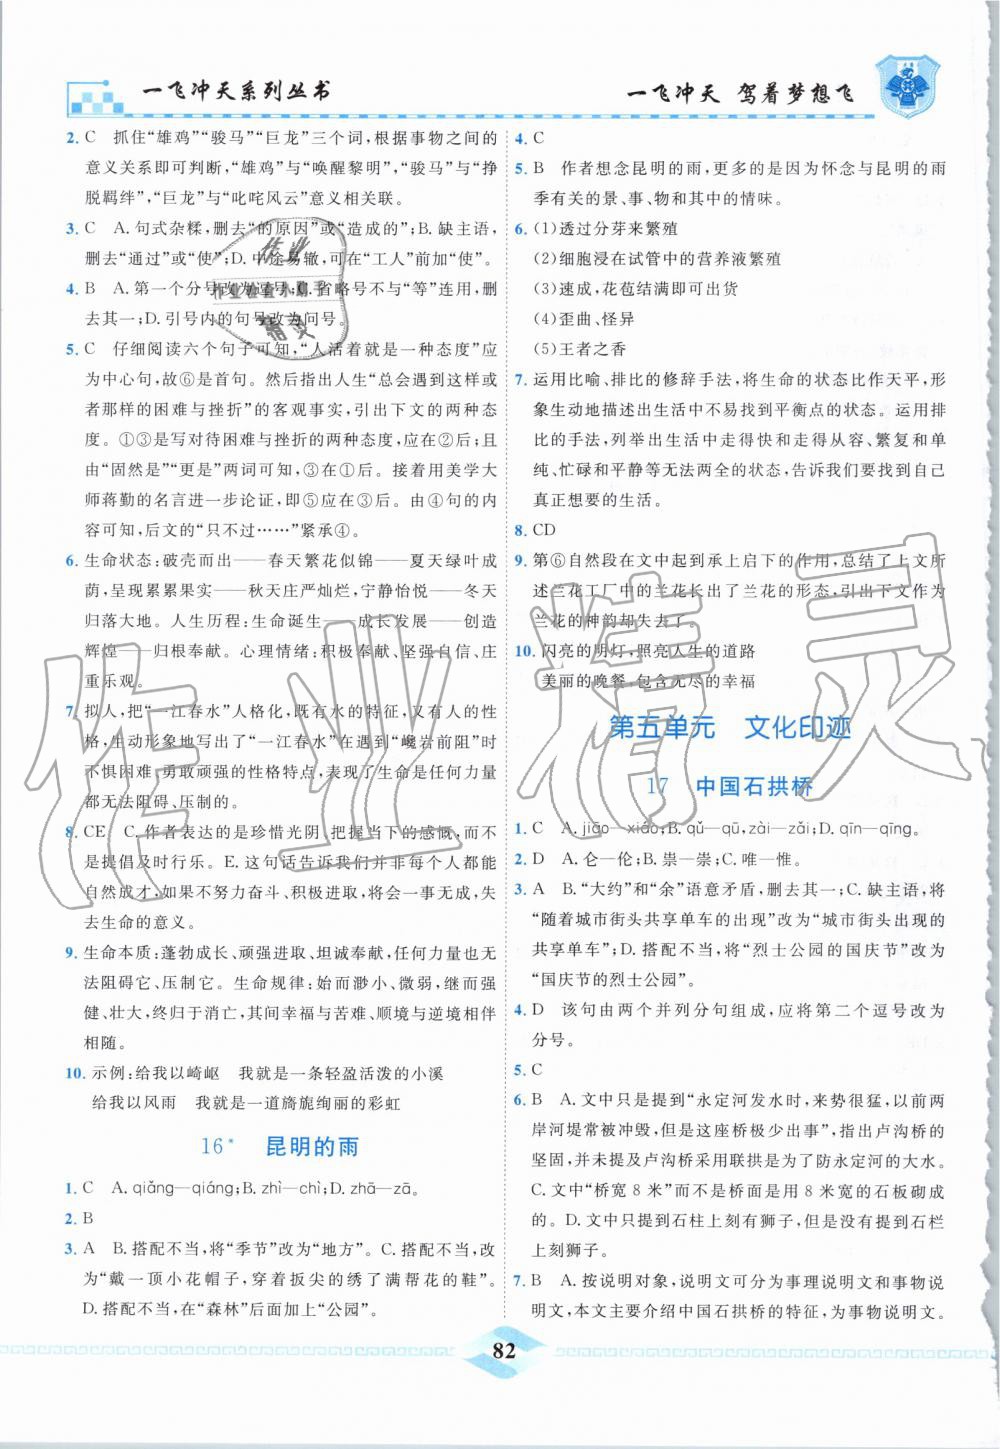 一飞冲天系列丛书
一飞冲天 驾着梦想飞
2. C 抓住“雄鸡”“骏马”“巨龙”三个词,根据事物之间的
意义关系即可判断,“雄鸡”与“唤醒黎明”,“骏马”与“挣
脱羁绊”,“巨龙”与“叱咤风云”意义相关联。
3. C A. 句式杂糅,删去“的原因”或“造成的”;B. 缺主语,
删去“通过”或“使”;D. 中途易辙,可在“工人”前加“使”。
4. B A. 第一个分号改为逗号;C. 省略号不与“等”连用,删
去其一;D. 引号内的句号改为问号。
5. C 仔细阅读六个句子可知,“人活着就是一种态度”应
为中心句,故⑥是首句。然后指出人生“总会遇到这样或
者那样的困难与挫折”的客观事实,引出下文的两种态
度。①③是写对待困难与挫折的两种态度,应在②后;且
由“固然是”“更是”两词可知,③在①后。接着用美学大
师蒋勤的名言进一步论证,即⑤应在③后。由④句的内
容可知,后文的“只不过……”紧承④。
6. 生命状态:破壳而出——春天繁花似锦——夏天绿叶成
荫,呈现累累果实——秋天庄严灿烂,宁静怡悦——冬天
归落大地。人生历程:生命诞生——成长发展——创造
辉煌——归根奉献。心理情绪:积极奉献、坚强自信、庄
重乐观。
7. 拟人,把“一江春水”人格化,既有水的特征,又有人的性
格,生动形象地写出了“一江春水”在“巉岩前阻”时的快
乐、勇敢顽强的性格特点,表现了生命是任何力量
都无法阻碍、压制的。
8. CE C. 作者表达的是珍惜光阴、把握当下的感慨,而不是
提倡及时行乐。E. 这句话告诉我们并非每个人都能自然
成才;如果不努力奋斗、积极进取,将会一事无成,失
去生命的意义。
9. 生命本质:蓬勃成长、顽强进取、坦诚奉献,任何力量也无
法阻碍它、压制它。生命规律:始而渺小、微弱,继而强
健、壮大,终归于消亡,其间幸福与苦难、顺境与逆境相伴
相随。
10. 示例:给我以崎岖 我就是一条轻盈活泼的小溪
给我以风雨 我就是一道旖旎绚丽的彩虹
16* 昆明的雨
1. C A. qiǎng—qiáng;B. zhì—chì;D. zhā—zā。
2. B
3. A B. 搭配不当,将“季节”改为“地方”。C. 搭配不当,改
为“戴一顶小花帽子,穿着扳尖的绣了满帮花的鞋”。
D. 搭配不当,在“森林”后面加上“公园”。
4. C
5. B 作者想念昆明的雨,更多的是因为怀念与昆明的雨
季有关的景、事、物和其中的情味。
6. (1)透过分芽来繁殖
(2)细胞浸在试管中的营养液繁殖
(3)速成,花苞结满即可出货
(4)歪曲、怪异
(5)王者之香
7. 运用比喻、排比的修辞手法,将生命的状态比作天平,形
象生动地描述出生活中不易找到平衡点的状态。运用排
比的手法,列举出生活中走得快和走得分心、繁复和单
纯、忙碌和平静等无法两全的状态,告诉我们要找到自己
真正想要的生活。
8. CD
9. 第⑥自然段在文中起到承上启下的作用,总结了上文所
述兰花工厂中的兰花长出了兰花的形态,引出下文作为
兰花的神韵却失去了。
10. 闪亮的明灯,照亮人生的道路
美丽的晚餐,包含无尽的幸福
第五单元 文化印迹
17 中国石拱桥
1. C A. jiāo—xiáo;B. qǔ—qū,zài—zǎi;D. qīn—qīng。
2. D A. 仑—伦;B. 祟—崇;C. 唯—惟。
3. A B. “大约”和“余”语意矛盾,删去其一;C. 缺主语,将
“随着城市街头共享单车的出现”改为“城市街头出现的
共享单车”;D. 搭配不当,将“烈士公园的国庆节”改为
“国庆节的烈士公园”。
4. D 该句由两个并列分句组成,应将第二个逗号改为
分号。
5. C
6. B A. 文中只是提到“永定河发水时,来势很猛,以前两
岸河堤常被冲毁,但是这座桥极少出事”,指出卢沟桥的
坚固,并未提及卢沟桥采用联拱是为防永定河的大水。
C. 文中“桥宽 8 米”而不是桥面是用 8 米宽的石板砌成
的。D. 文中只提到石柱上刻有狮子,但没有提到石栏
上刻狮子。
7. B A. 按说明对象,说明文可分为事理说明文和事物说
明文,本文主要介绍中国石拱桥的特征,为事物说明文。
82
作业精灵